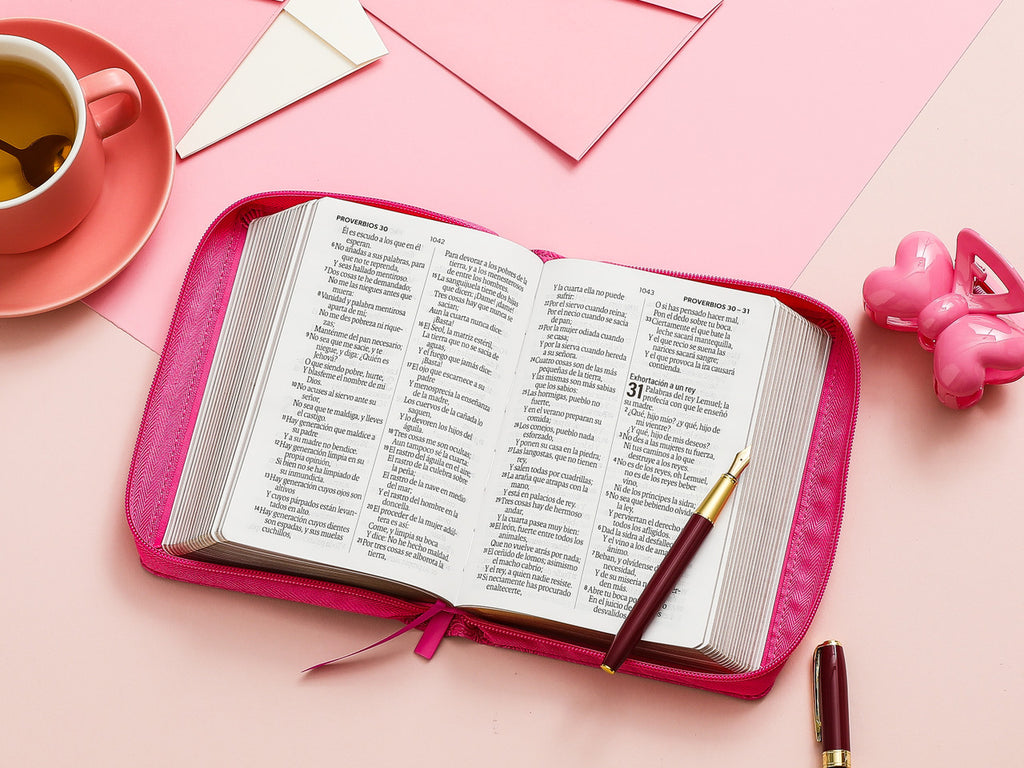 PROVERBIOS 30
1042
Él es escudo a los que en él
esperan.
6 No añadas a sus palabras, para
que no te reprenda,
Y seas hallado mentiroso
7 Dos cosas te he demandado;
No me las niegues antes que
muera:
8 Vanidad y palabra mentirosa
aparta de mí;
No me des pobreza ni rique-
zas;
Manténme del pan necesario;
9 No sea que me sacie, y te
niegue, y diga: ¿Quién es
Jehová?
O que siendo pobre, hurte,
Y blasfeme el nombre de mi
Dios.
10 No acuses al siervo ante su
señor,
No sea que te maldiga, y lleves
el castigo.
11 Hay generación que maldice a
su padre
Y a su madre no bendice.
12 Hay generación limpia en su
propia opinión,
Si bien no se ha limpiado de
su inmundicia.
13 Hay generación cuyos ojos son
altivos
Y cuyos párpados están levan-
tados en alto.
14 Hay generación cuyos dientes
son espadas, y sus muelas
cuchillos,
Para devorar a los pobres de la
tierra, y a los menesterosos
de entre los hombres.
15 La sanguijuela tiene dos hijas
que dicen: ¡Dame! ¡dame!
Tres cosas hay que nunca se
sacian;
Aun la cuarta nunca dice:
¡Basta!
16 El Seol, la matriz estéril,
La tierra que no se sacia de
aguas,
Y el fuego que jamás dice:
¡Basta!
17 El ojo que escarnece a su
padre
Y menosprecia la enseñanza
de la madre,
Los cuervos de la cañada lo
saquen,
Y lo devoren los hijos del
águila.
18 Tres cosas me son ocultas;
Aun tampoco sé la cuarta:
19 El rastro del águila en el aire;
El rastro de la culebra sobre
la peña;
El rastro de la nave en medio
del mar;
Y el rastro del hombre en la
doncella.
20 El proceder de la mujer adúl-
tera es así:
Come, y limpia su boca
Y dice: No he hecho maldad.
21 Por tres cosas se alborota la
tierra,
1043
PROVERBIOS 30 – 31
Y la cuarta ella no puede
sufrir:
22 Por el siervo cuando reina;
Por el necio cuando se sacia
de pan;
23 Por la mujer odiada cuando
se casa;
Y por la sierva cuando hereda
a su señora.
24 Cuatro cosas son de las más
pequeñas de la tierra,
Y las mismas son más sabias
que los sabios:
25 Las hormigas, pueblo no
fuerte,
Y en el verano preparan su
comida;
26 Los conejos, pueblo nada
esforzado,
Y ponen su casa en la piedra;
27 Las langostas, que no tienen
rey,
Y salen todas por cuadrillas;
28 La araña que atrapas con la
mano,
Y está en palacios de rey.
29 Tres cosas hay de hermoso
andar,
Y la cuarta pasea muy bien:
30 El león, fuerte entre todos los
animales,
Que no vuelve atrás por nada;
31 El ceñido de lomos; asimismo
el macho cabrío;
Y el rey, a quien nadie resiste.
32 Si neciamente has procurado
enaltecerte,
O si has pensado hacer mal,
Pon el dedo sobre tu boca.
33 Ciertamente el que bate la
leche sacará mantequilla,
Y el que recio se suena las
narices sacará sangre;
Y el que provoca la ira causará
contienda.
Exhortación a un rey
31 Palabras del rey Lemuel; la
profecía con que le enseñó
su madre.
2 ¿Qué, hijo mío? ¿y qué, hijo de
mi vientre?
¿Y qué, hijo de mis deseos?
3 No des a las mujeres tu fuerza,
Ni tus caminos a lo que
destruye a los reyes.
4 No es de los reyes, oh Lemuel,
No es de los reyes beber
vino,
Ni de los príncipes la sidra;
5 No sea que bebiendo olviden
la ley,
Y perviertan el derecho
todos los afligidos.
6 Dad la sidra al desfalle
Y el vino a los de amar
ánimo.
7 Beban, y olvídense de
necesidad,
Y de su miseria no
den más.
8 Abre tu boca por
En el juicio de
desvalidos